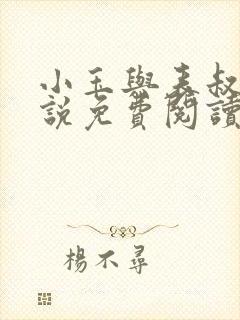 小玉與表叔
說免費閱讀
楊不尋